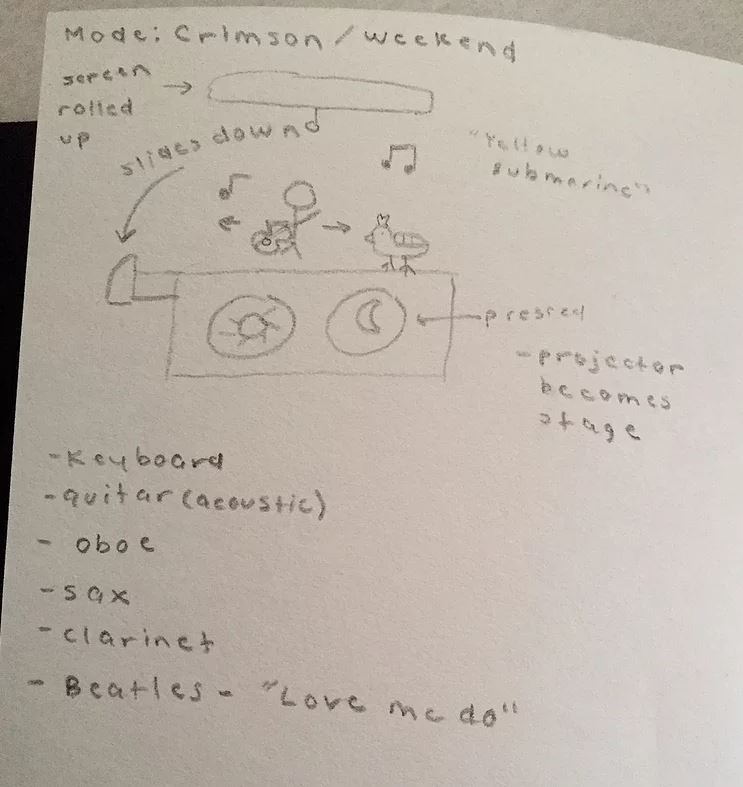 Mode: Crimson/weekend
screen
rolled
up
slides down
"Yellow
submarine"
pressed
-projector
becomes
stage
-Keyboard
-guitar (acoustic)
- oboe
-sax
-clarinet
- Beatles - "Love me do"